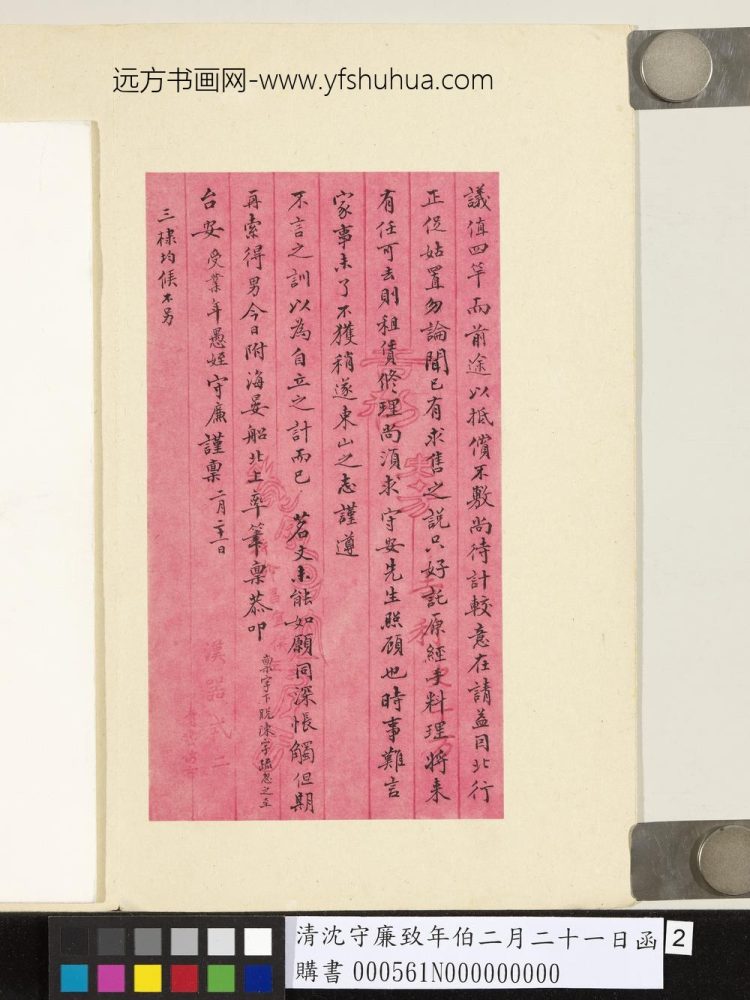 远方书画网-www.yfshuhua.com
議值四竿而前途以抵償不敷尚待計較意在請益目北行
正促姑置勿論聞已有求售之說只好託原經手料理將來
有任可去則租賃修理尚須求守安先生照顧也時事難言
家事未了不獲稍遂東山之志謹遵
不言之訓以為自立之計而已 茗文未能如願同深悵觸但期
再索得男今日附海晏船北上率筆稟恭叩
稟字下脫淶字疏忽之至
台安 受業年愚姪守廉謹稟 二月二十一日
三棣均候不另
漢器式二
清沈守廉致年伯二月二十一日函 2
購書 000561N000000000